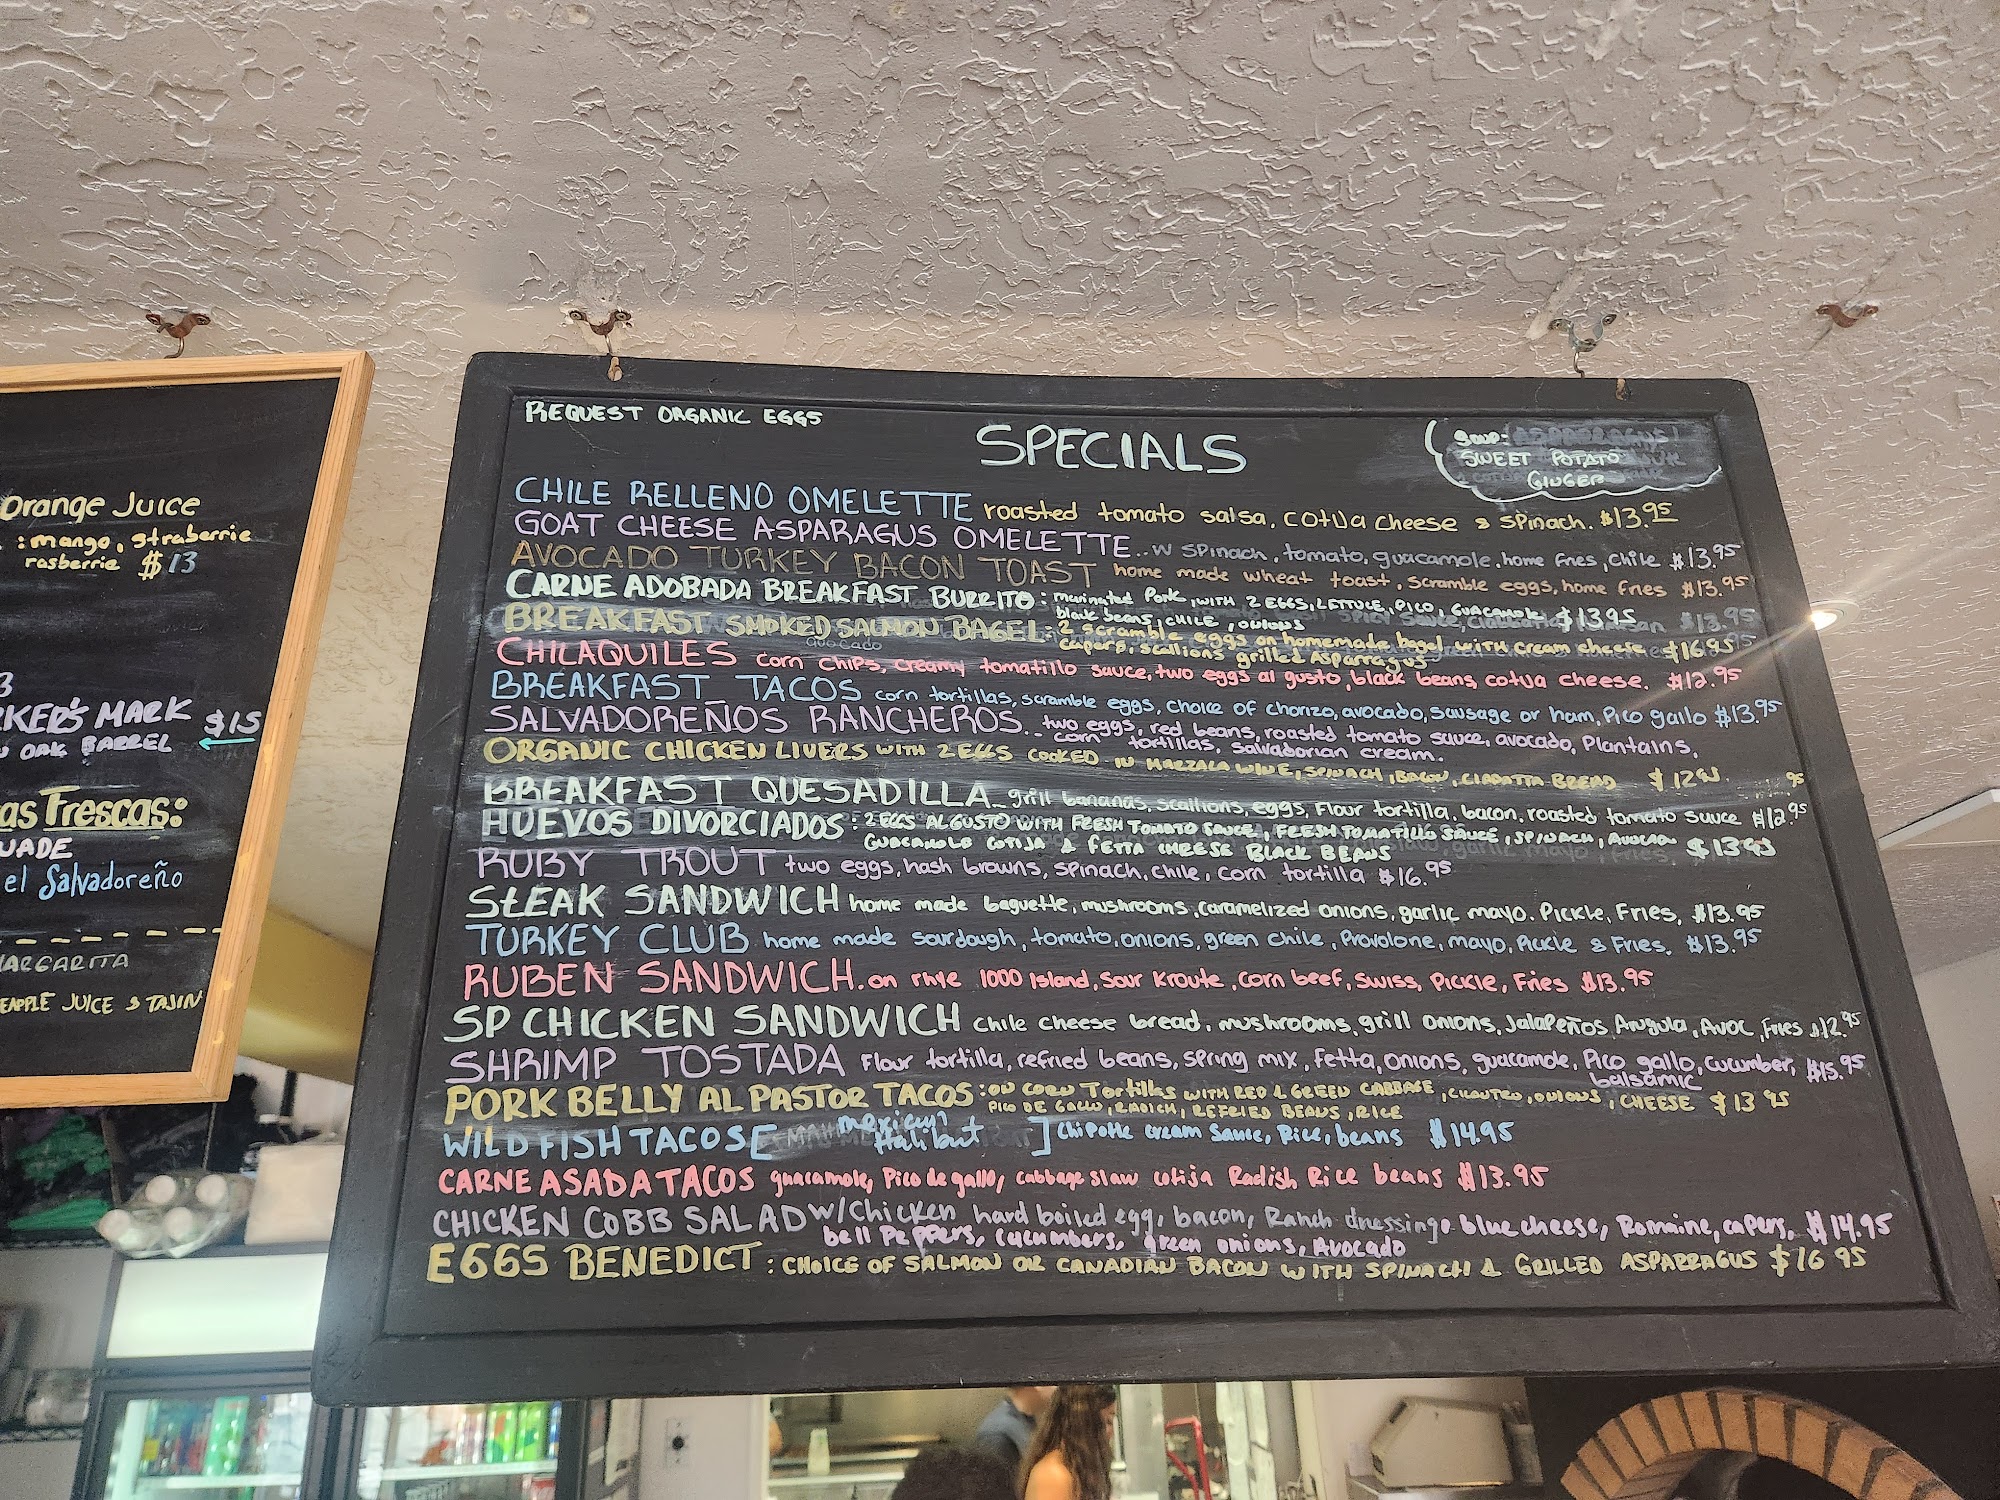 Orange Juice
: mango, straberrie
rasberrie $13
3
RKER'S MARK $15
OAK BARREL
as Frescas:
UADE
el Salvadoreño
ARGARITA
EAPPLE JUICE & TAJIN
REQUEST ORGANIC EGGS
SPECIALS
SOUP:
SWEET POTATO
GINGER
CHILE RELLENO OMELETTE roasted tomato salsa, cotija cheese & spinach. $13.95
GOAT CHEESE ASPARAGUS OMELETTE.. w spinach, tomato, guacamole, home fries, chile $13.95
AVOCADO TURKEY BACON TOAST home made wheat toast, scramble eggs, home fries $13.95
CARNE ADOBADA BREAKFAST BURRITO: marinated Pork, WITH 2 EGGS, LETTUCE, PICO, GUACAMOLE $13.95
black beans, CHILE, ONIONS
BREAKFAST SMOKED SALMON BAGEL: 2 scramble eggs on homemade bagel with cream cheese $16.95
capers, scallions grilled Asparragus
CHILAQUILES corn chips, creamy tomatillo sauce, two eggs al gusto, black beans, cotija cheese. $12.95
BREAKFAST TACOS corn tortillas, scramble eggs, choice of chorizo, avocado, sausage or ham, Pico gallo $13.95
SALVADOREÑOS RANCHEROS.. two eggs, red beans, roasted tomato sauce, avocado, Plantains,
corn tortillas, salvadorian cream.
ORGANIC CHICKEN LIVERS WITH 2 EGGS COOKED IN MARZALA WINE, SPINACH, BACON, CIABATTA BREAD $12.95
BREAKFAST QUESADILLA_ grill bananas, scallions, eggs, Flour tortilla, bacon, roasted tomato sauce $12.95
HUEVOS DIVORCIADOS: 2 EGGS AL GUSTO WITH FRESH TOMATO SAUCE, FRESH TOMATILLO SAUCE, SPINACH, AVOCADO $13.95
GUACAMOLE COTIJA & FETTA CHEESE BLACK BEANS
RUBY TROUT two eggs, hash browns, spinach, chile, corn tortilla $16.95
STEAK SANDWICH home made baguette, mushrooms, caramelized onions, garlic mayo. Pickle, Fries, $13.95
TURKEY CLUB home made sourdough, tomato, onions, green chile, Provolone, mayo, Pickle & Fries. $13.95
RUBEN SANDWICH. on rhye 1000 Island, Sour Kroute, Corn beef, Swiss, Pickle, Fries $13.95
SP CHICKEN SANDWICH chile cheese bread, mushrooms, grill onions, Jalapeños, Arugula, Avoc, Fries $12.95
SHRIMP TOSTADA Flour tortilla, refried beans, spring mix, Fetta, onions, guacamole, Pico gallo, cucumber, $15.95
balsamic
PORK BELLY AL PASTOR TACOS: ON CORN Tortillas WITH RED & GREEN CABBAGE, CILANTRO, ONIONS, CHEESE $13.95
PICO DE GALLO, RADICH, REFRIED BEANS, RICE
WILD FISH TACOS [ mexican Halibut ] Chipotle cream Sauce, Rice, beans $14.95
CARNE ASADA TACOS guacamole, Pico de gallo, cabbage slaw cotija Radish Rice beans $13.95
CHICKEN COBB SALAD w/Chicken hard boiled egg, bacon, Ranch dressing, blue cheese, Romaine, capers, $14.95
bell Peppers, cucumbers, green onions, Avocado
EGGS BENEDICT: CHOICE OF SALMON OR CANADIAN BACON WITH SPINACH & GRILLED ASPARRAGUS $16.95